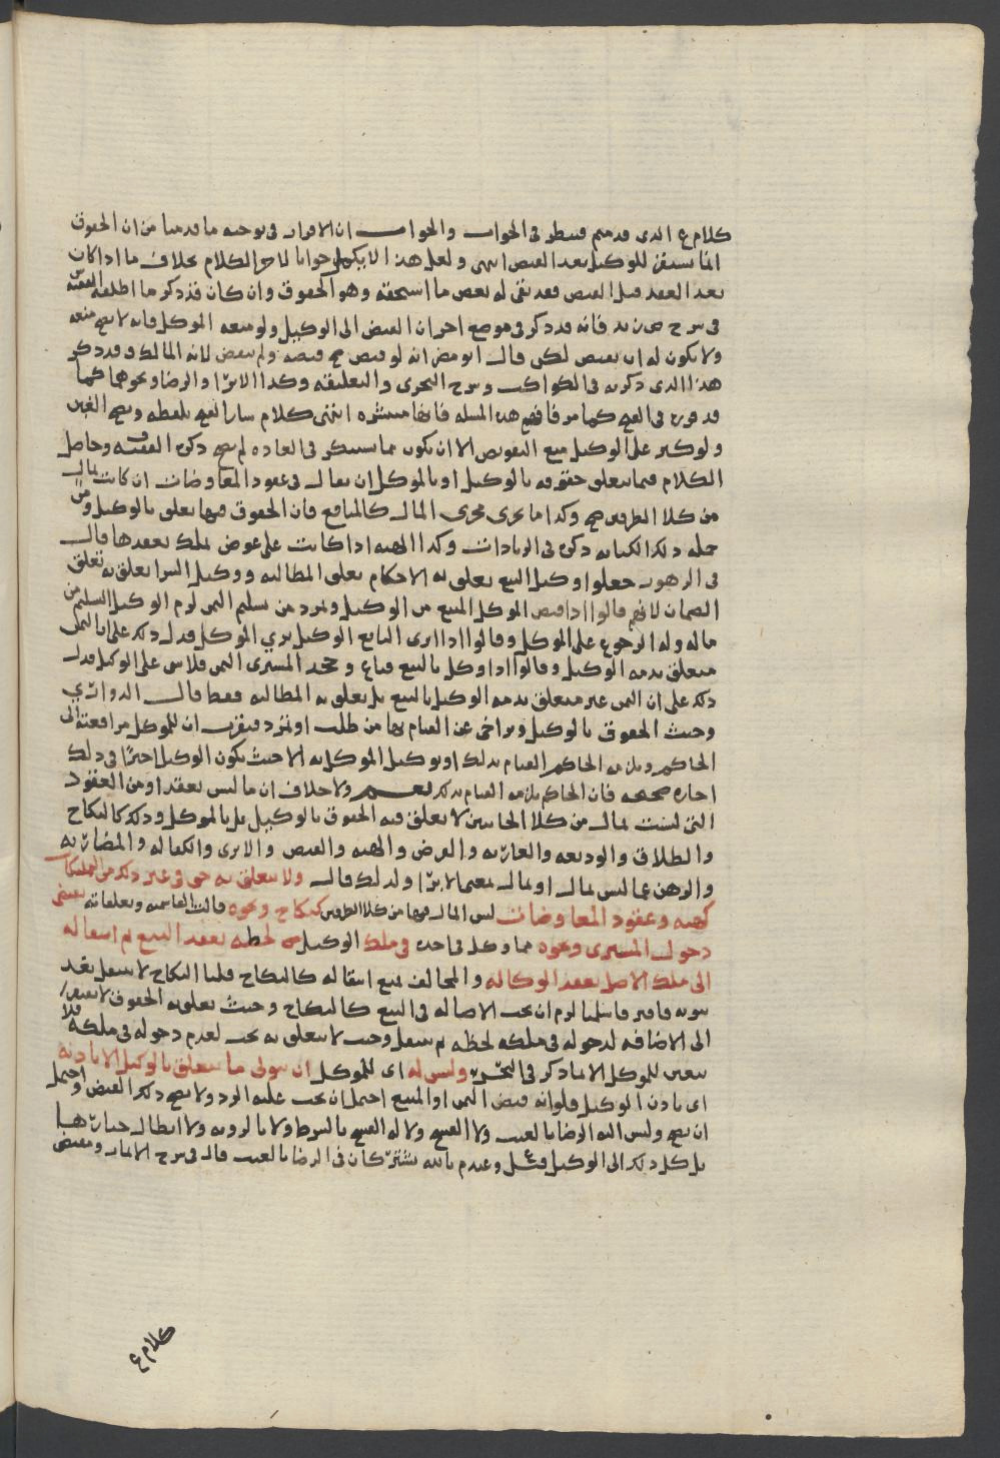 كلام ع الذي قدمتم فينظر في الجواب والجواب ان الاقوال في توجيه ما قدمنا من ان الحقوق
انما تستقر للوكيل بعد القبض انتهى ولعل هذا لا يكون جوابا لاخر الكلام بخلاف ما اذا كان
بعد العقد قبل القبض فقد بقي له بعض ما استحقه وهو الحقوق وان كان قد ذكر ما اطلقه الفقيه
في شرح فانه قد ذكر في موضع اخر ان القبض الى الوكيل ولو منعه الموكل فانه لا يصح منعه
ولا يكون له ان يقبض لكن قال ابو مضر انه لو قبض صح قبضه ولم ينقض لانه المالك وقد ذكر
هذا الذي ذكره في الكواكب وشرح البحري والتعليقة وكذا الابرا والرضا ونحوهما كما
في الفسخ كما مر فافهم هذه المسله فانها كلام سار الفسخ بلفظه ويصح
ولو كبر على الوكيل جميع التعويض الا ان يكون مما يستنكر في العاده لم يصح ذكره الفقيه ف وحاصل
الكلام فيما يتعلق حقوقه بالوكيل او بالموكل ان يقال في عقود المعاوضات ان كانت بمال
من كلا الطرفين صح وكذا ما يجري مجرى المال كالمنافع فان الحقوق فيها تعلق بالوكيل ومن
جمله ذلك الكتابه ذكره في الزيادات وكذا الهبه اذا كانت على عوض يملك بعقدها قال
في الزهور جعلوا وكيل البيع يتعلق به الاحكام يعني المطالبه ووكيل الشرا يتعلق به تعلق
الضمان لانهم قالوا اذا قبض الموكل المبيع من الوكيل وتمرد من تسليم الثمن لزم الوكيل التسليم من
ماله وله الرجوع على الموكل وقالوا اذا ابرى البايع الوكيل بري الموكل فدل ذلك على ان الثمن
متعلق بذمه الوكيل وقالوا اذا وكل بالبيع فباع وجحد المشتري الثمن فلا شي على الوكيل فدل
ذلك على ان الثمن غير متعلق بذمه الوكيل بالبيع بل يتعلق به المطالبه فقط قال الدواري
وحيث الحقوق بالوكيل وتراخى عن القيام بها من طلب او تمرد فيقرب ان للموكل مرافعته الى
الحاكم ويلزمه الحاكم القيام بذلك او توكيل الموكل به الا حيث يكون الوكيل اجيرا في ذلك
اجاره صحيحه فان الحاكم يلزمه القيام بذلك نعم ولا خلاف ان ما ليس بعقد او من العقود
التي ليست بمال من كلا الجانبين لا يتعلق فيه الحقوق بالوكيل بل بالموكل وذلك كالنكاح
والطلاق والوديعه والعاريه والقرض والهبه والقبض والابرى والكفاله والمضاربه
والرهن مما ليس بمال او بمال بمعنى الابرا ولذلك قال ولا يتعلق به حق في غير ذلك من التمليكات
كهبه وعقود المعاوضات ليس المال فيها من كلا الطرفين كنكاح ونحوه قالت القاسميه وتعلقاته تقتضي
دخول المشترى ونحوه مما وكل في اخذه في ملك الوكيل من لحظه بعقد البيع ثم انتقاله
الى ملك الاصل بعقد الوكاله والمخالف منع انتقاله كالنكاح قلنا النكاح لا ينتقل بعد
ثبوته فافترقا سلمنا لزم ان تجب الاضافه في البيع كالنكاح وحيث تعلق به الحقوق لا يفتقر
الى الاضافه لدخوله في ملكه لحظه ثم ينتقل وحيث لا يتعلق به تجب لعدم دخوله في ملكه فلا
يتعين للموكل الا بما ذكر في وليس له اي للموكل ان يتولى ما يتعلق بالوكيل الا باذنه
اي باذن الوكيل فلو انه قبض الثمن او المبيع احتمل ان يجب عليه الرد ولا يصح ذلك القبض واحتمل
ان يصح وليس اليه الرضا بالعيب ولا الفسخ ولا له الفسخ بالشرط ولا بالرؤيه ولا ابطال خيارها
بل كل ذلك الى الوكيل وعندم بالله يشتركان في الرضا بالعيب قال في شرح الاثمار ومقتضى
كلام ع